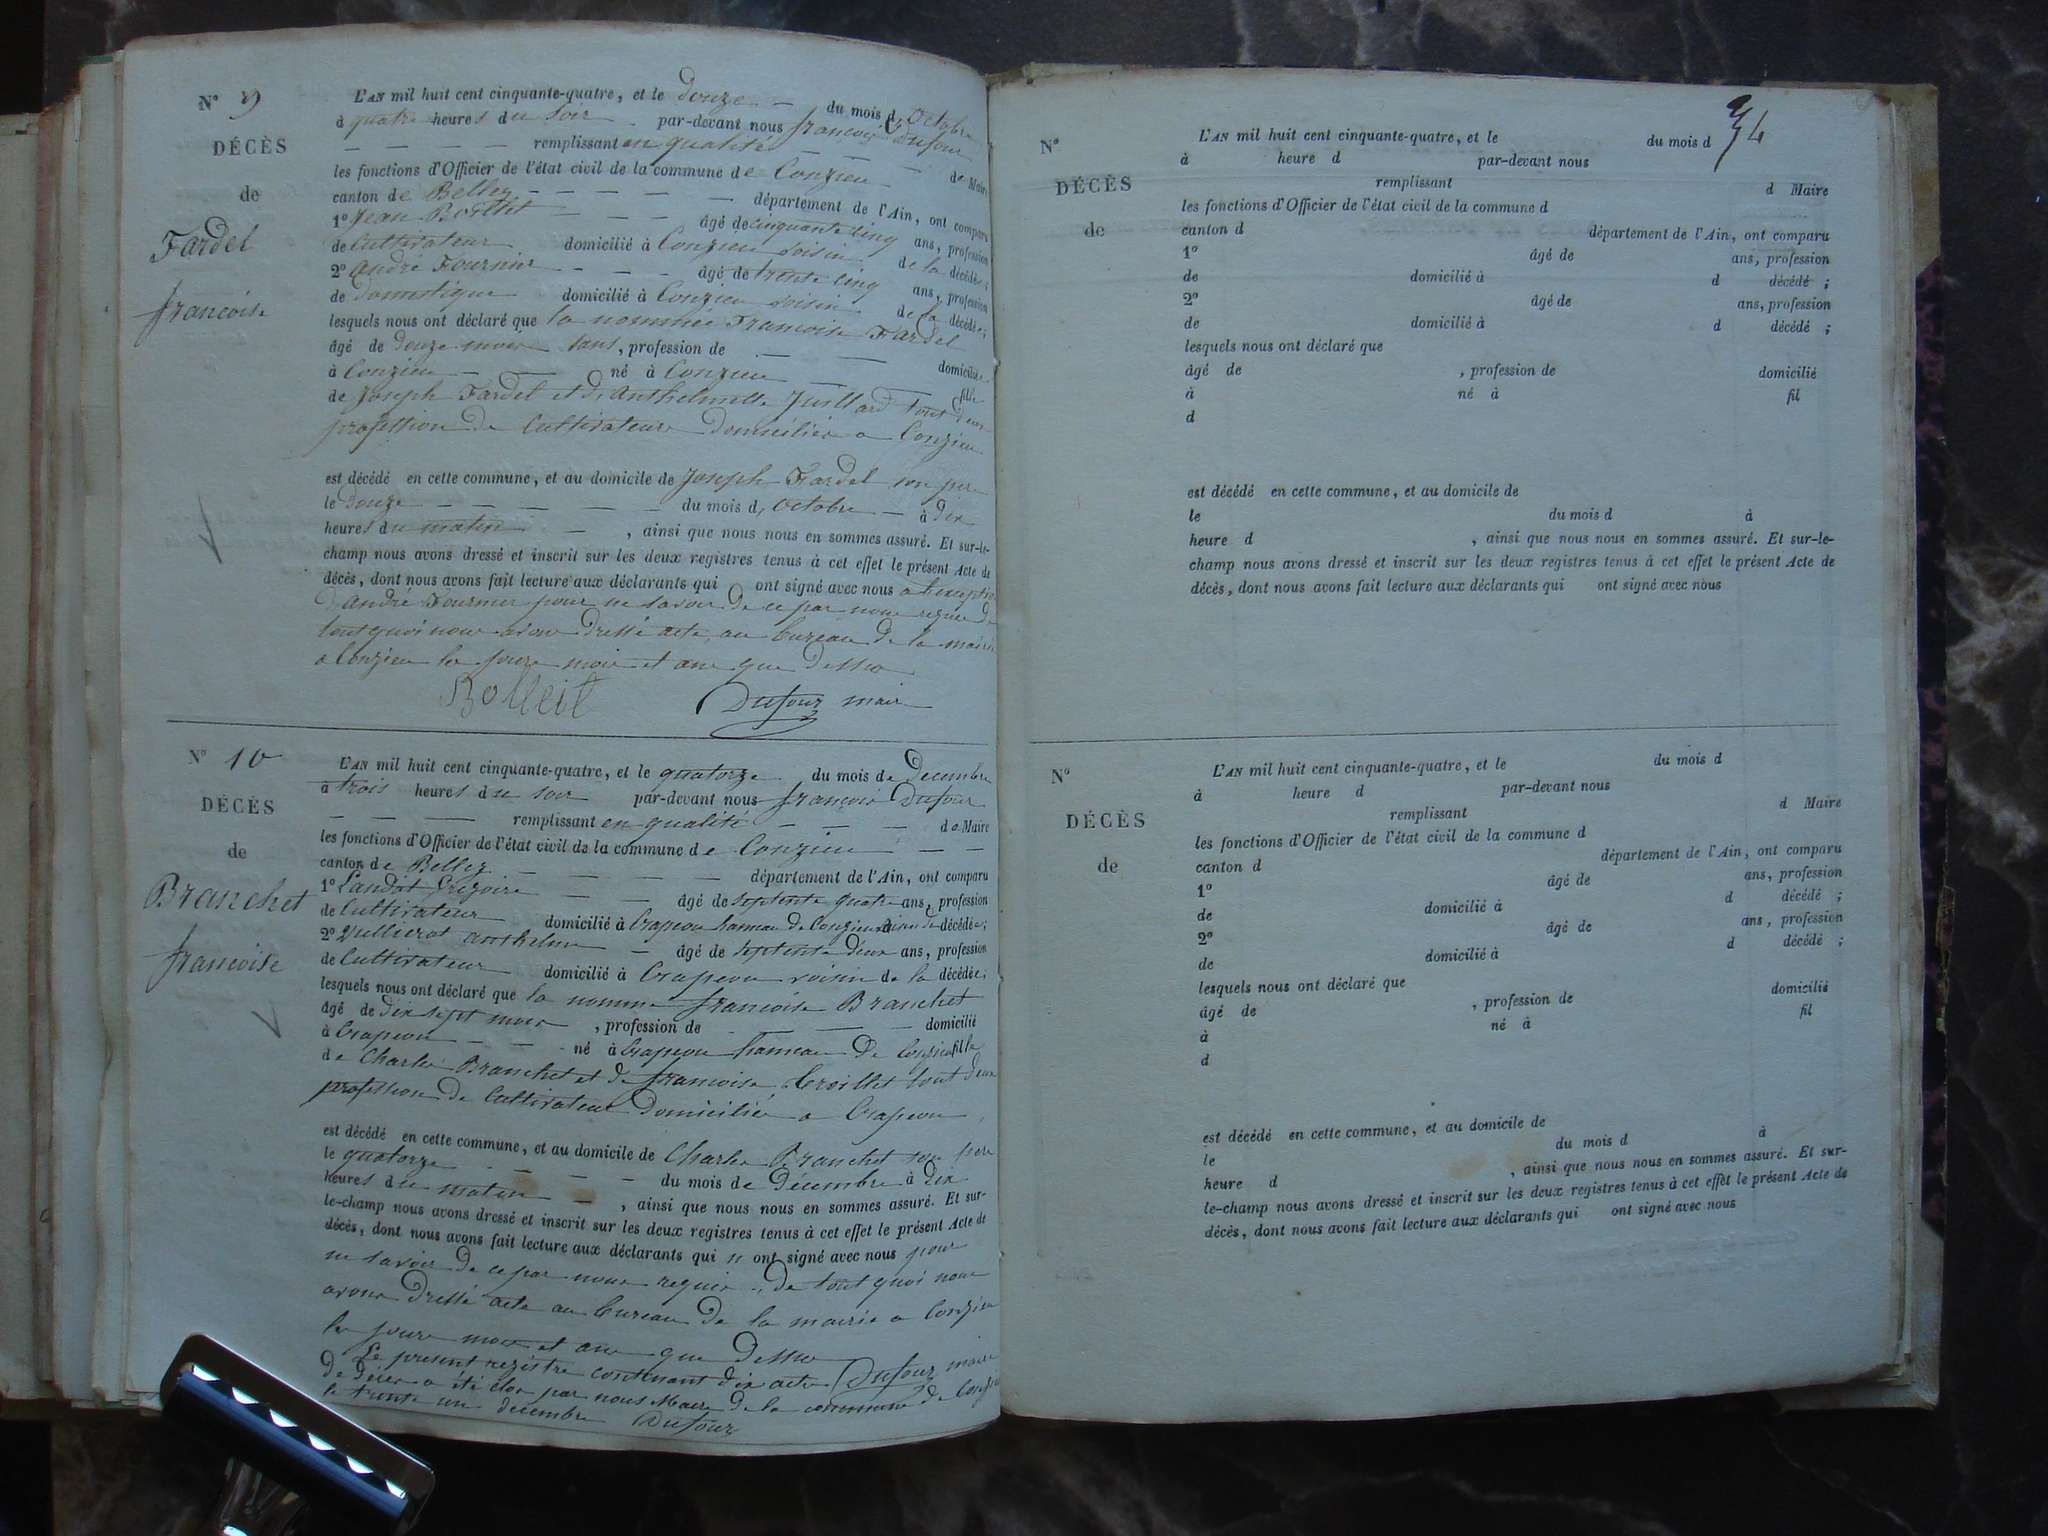 N° 9
DÉCÈS
de
Fardel
francoise
L'AN mil huit cent cinquante-quatre, et le douze — du mois d'Octobre
à quatre heures du soir par-devant nous françois Dufour
— — — — remplissant en qualité — — — de Maire
les fonctions d'Officier de l'état civil de la commune de Conzieu
canton de Belley — — — — — département de l'Ain, ont comparu
1° Jean — — — âgé de cinquante cinq ans, profession
de Cultivateur domicilié à Conzieu voisin de la décédée;
2° André Fournier — — — âgé de trente cinq ans, profession
de domestique domicilié à Conzieu voisin de la décédée;
lesquels nous ont déclaré que la nommée Francoise Fardel
âgé de douze mois sans, profession de — — domiciliée
à Conzieu — — né à Conzieu — fille
de Joseph Fardel et d'Anthelmette Juillard tout deux
profession de Cultivateur domicilies a Conzieu
est décédé en cette commune, et au domicile de Joseph Fardel son pere
le douze — — — — — du mois d'octobre — à dix
heures du matin — , ainsi que nous nous en sommes assuré. Et sur-le-
champ nous avons dressé et inscrit sur les deux registres tenus à cet effet le présent Acte de
décès, dont nous avons fait lecture aux déclarants qui ont signé avec nous a l'exception
d'André Fournier pour ne savoir de ce par nous requis de
tout quoi nous avons dressé acte au bureau de la mairie
a Conzieu les jours mois et ans que dessus
Bolleit Dufour maire
N° 10
DÉCÈS
de
Branchet
francoise
L'AN mil huit cent cinquante-quatre, et le quatorze du mois de Decembre
à trois heures du soir par-devant nous françois Dufour
— — — remplissant en qualité — — — de Maire
les fonctions d'Officier de l'état civil de la commune de Conzieu — —
canton de Belley — — — — — département de l'Ain, ont comparu
1° Landot Grégoire — — — âgé de septente quatre ans, profession
de Cultivateur domicilié à Crapeou hameau de Conzieu voisin de décédée;
2° Vullierot anthelme — âgé de septente deux ans, profession
de Cultivateur domicilié à Crapeou voisin de la décédée;
lesquels nous ont déclaré que la nommée francoise Branchet
âgé de dix sept mois , profession de — — — domicilié
à Crapeou — — né à Crapeou hameau de Conzieu fille
de Charles Branchet et de francoise Croillet tout deux
profession de Cultivateur domiciliés a Crapeou
est décédé en cette commune, et au domicile de Charles Branchet son pere
le quatorze — — — du mois de décembre à dix
heures du matin — , ainsi que nous nous en sommes assuré. Et sur-
le-champ nous avons dressé et inscrit sur les deux registres tenus à cet effet le présent Acte de
décès, dont nous avons fait lecture aux déclarants qui n ont signé avec nous pour
ne savoir de ce par nous requis, de tout quoi nous
avons dressé acte au bureau de la mairie a Conzieu
les jours mois et ans que dessus
Le present registre contenant dix actes Dufour maire
de décès a été clos par nous Maire de la commune de Conzieu
le trente un decembre Dufour
94
N°
DÉCÈS
de
L'AN mil huit cent cinquante-quatre, et le du mois d
à heure d par-devant nous
remplissant d Maire
les fonctions d'Officier de l'état civil de la commune d
canton d département de l'Ain, ont comparu
1° âgé de ans, profession
de domicilié à d décédé ;
2° âgé de ans, profession
de domicilié à d décédé ;
lesquels nous ont déclaré que
âgé de , profession de domicilié
à né à fil
d
est décédé en cette commune, et au domicile de
le du mois d à
heure d , ainsi que nous nous en sommes assuré. Et sur-le-
champ nous avons dressé et inscrit sur les deux registres tenus à cet effet le présent Acte de
décès, dont nous avons fait lecture aux déclarants qui ont signé avec nous
N°
DÉCÈS
de
L'AN mil huit cent cinquante-quatre, et le du mois d
à heure d par-devant nous
remplissant d Maire
les fonctions d'Officier de l'état civil de la commune d
canton d département de l'Ain, ont comparu
1° âgé de ans, profession
de domicilié à d décédé ;
2° âgé de ans, profession
de domicilié à d décédé ;
lesquels nous ont déclaré que
âgé de , profession de domicilié
à né à fil
d
est décédé en cette commune, et au domicile de
le du mois d à
heure d , ainsi que nous nous en sommes assuré. Et sur-
le-champ nous avons dressé et inscrit sur les deux registres tenus à cet effet le présent Acte de
décès, dont nous avons fait lecture aux déclarants qui ont signé avec nous